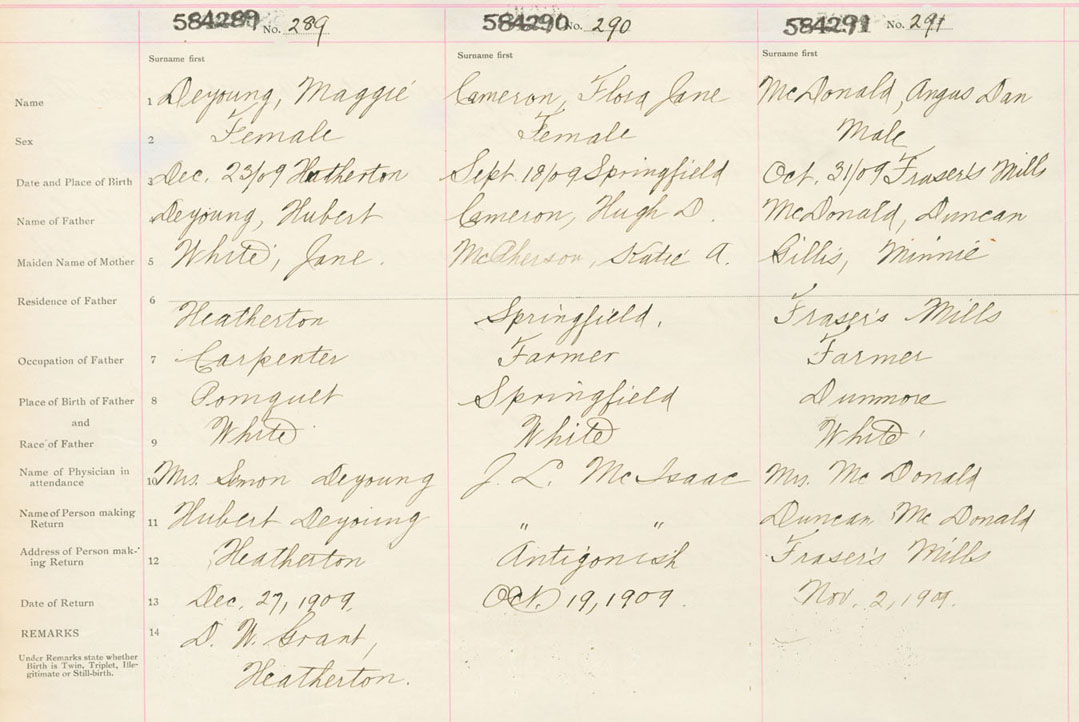 584289 No. 289 584290 No. 290 584291 No. 291
Surname first Surname first Surname first
Name 1 Deyoung, Maggie Cameron, Flora Jane McDonald, Angus Dan
Sex 2 Female Female Male
Date and Place of Birth 3 Dec. 23/09 Heatherton Sept 18/09 Springfield Oct. 31/09 Fraser's Mills
Name of Father 4 Deyoung, Hubert Cameron, Hugh D. McDonald, Duncan
Maiden Name of Mother 5 White, Jane. McPherson, Katie A. Gillis, Minnie
Residence of Father 6 Heatherton Springfield. Fraser's Mills
Occupation of Father 7 Carpenter Farmer Farmer
Place of Birth of Father 8 Pomquet Springfield Dunmore
and
Race of Father 9 White White White
Name of Physician in
attendance 10 Mrs. Simon Deyoung J. L. McIsaac Mrs. McDonald
Name of Person making
Return 11 Hubert Deyoung " " Duncan McDonald
Address of Person mak-
ing Return 12 Heatherton Antigonish Fraser's Mills
Date of Return 13 Dec. 27, 1909 Oct. 19, 1909. Nov. 2, 1909.
REMARKS 14 D. W. Grant,
Under Remarks state whether
Birth is Twin, Triplet, Ille-
gitimate or Still-birth.
Heatherton.